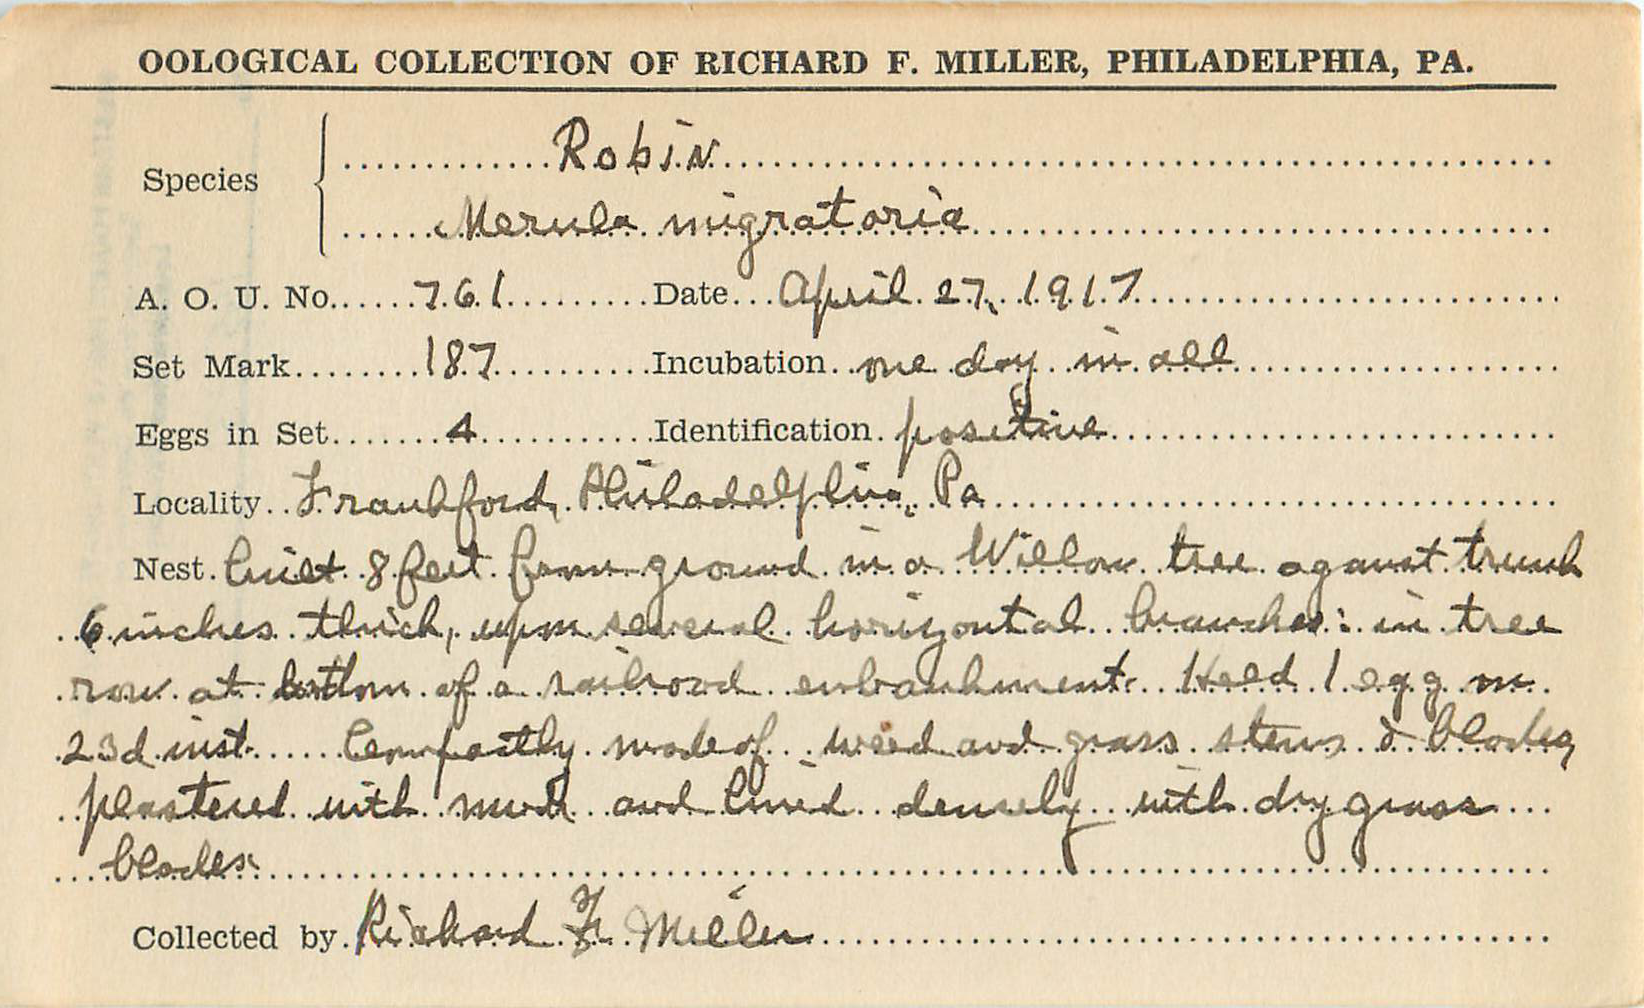 OOLOGICAL COLLECTION OF RICHARD F. MILLER, PHILADELPHIA, PA.
Species Robin
Merula migratoria
A. O. U. No. 761 Date April 27, 1917
Set Mark 187 Incubation one day in all
Eggs in Set 4 Identification positive
Locality Frankford, Philadelphia, Pa
Nest built 8 feet from ground in a Willow tree against trunk
6 inches thick, upon several horizontal branches: in tree
row at bottom of a railroad embankment. Held 1 egg on
23d inst. Compactly made of weed and grass stems & blades,
plastered with mud and lined densely with dry grass
blades.
Collected by Richard F. Miller